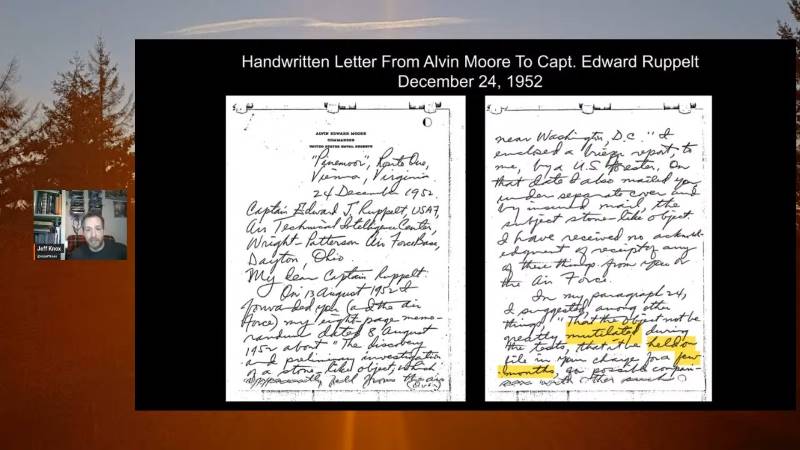 Handwritten Letter From Alvin Moore To Capt. Edward Ruppelt
December 24, 1952
ALVIN EDWARD MOORE
COMMANDER
UNITED STATES NAVAL RESERVE
"Pinemoor", Route One,
Vienna, Virginia.
24 December 1952.
Captain Edward J. Ruppelt, USAF,
Air Technical Intelligence Center,
Wright-Patterson Air Force Base,
Dayton, Ohio.
My dear Captain Ruppelt:
On 13 August 1952 I
forwarded you (and the Air
Force) my eight-page memo-
randum dated 8 August
1952 about "The discovery
and preliminary investigation
of a stone-like object, which
apparently fell from the air
(Over)
near Washington, D.C." I
enclosed a brief report, to
me, by a U.S. Forester. On
that date I also mailed you
under separate cover and
by insured mail, the
subject stone-like object.
I have received no acknowl-
edgment of receipt of any
of these things from you or
the Air Force.
In my paragraph 24,
I suggested, among other
things, "That the object not be
greatly mutilated during
the tests, that it be held on
file in your charge for a few
months, for possible compari-
sons with other such
Jeff Knox